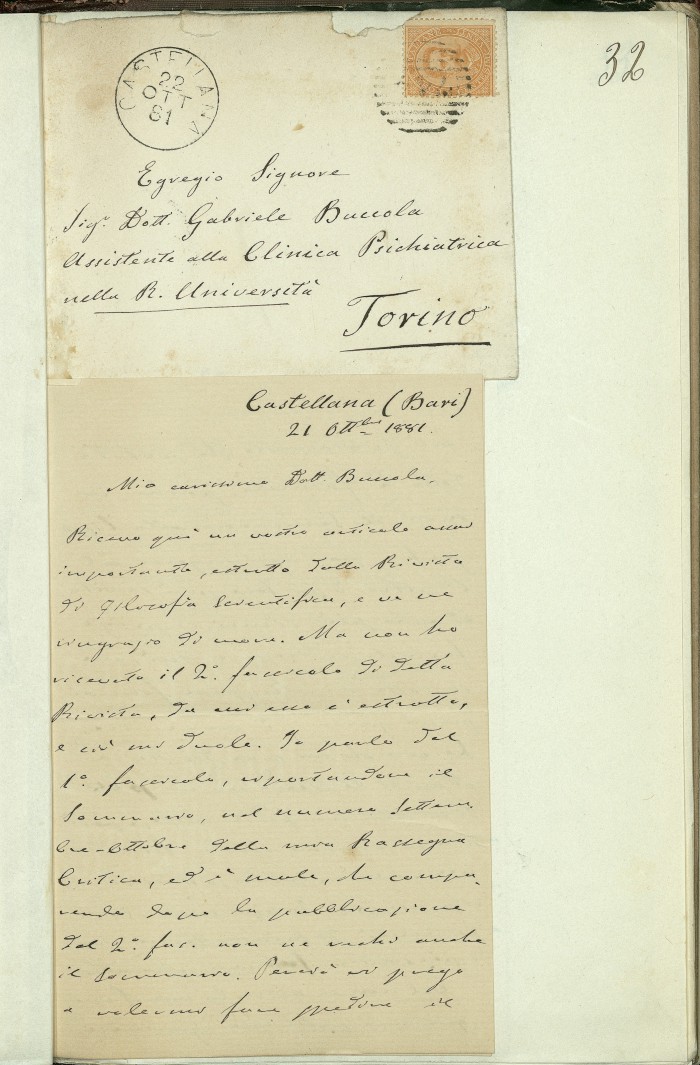 32
CASTELLANA
22
OTT
81
Egregio Signore
Sigr. Dott. Gabriele Buccola
Assistente alla Clinica Psichiatrica
nella R. Università
Torino
Castellana (Bari)
21 Ottbre 1881.
Mio carissimo Dott. Buccola,
Ricevo quì un vostro articolo assai
importante, estratto dalla Rivista
di Filosofia Scientifica, e ve ne
ringrazio di cuore. Ma non ho
ricevuto il 2.° fascicolo di detta
Rivista, da cui esso è estratto,
e ciò mi duole. Io parlo del
1.° fascicolo, riportandone il
Sommario, nel numero Settem-
bre-Ottobre della mia Rassegna
Critica, ed è male, che compa-
rendo dopo la pubblicazione
del 2.° fas. non ne rechi anche
il Sommario. Perciò vi prego
a volermi fare spedire il